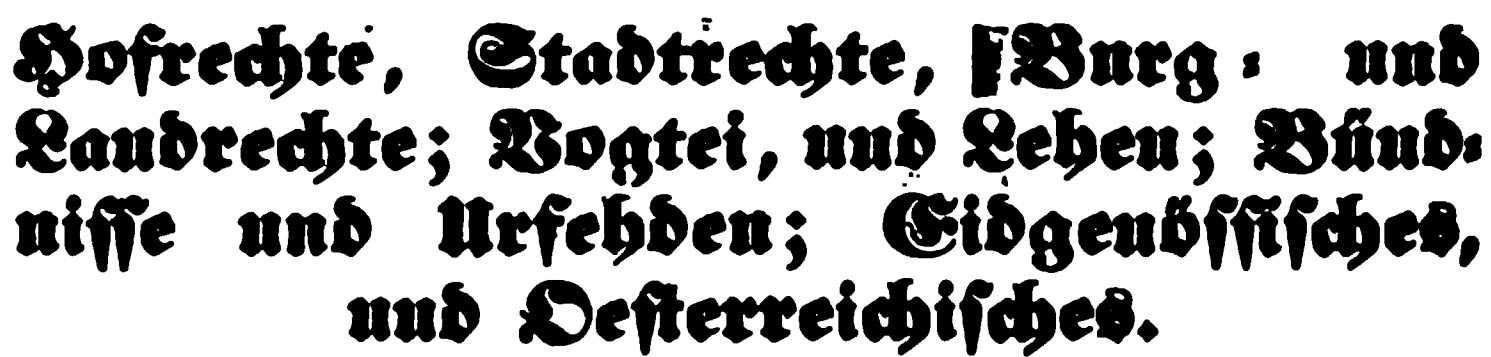 Hofrechte, Stadtrechte, Burg- und
Landrechte; Vogtei, und Lehen; Bünd-
nisse und Urfehden; Eidgenössisches,
und Oesterreichisches.